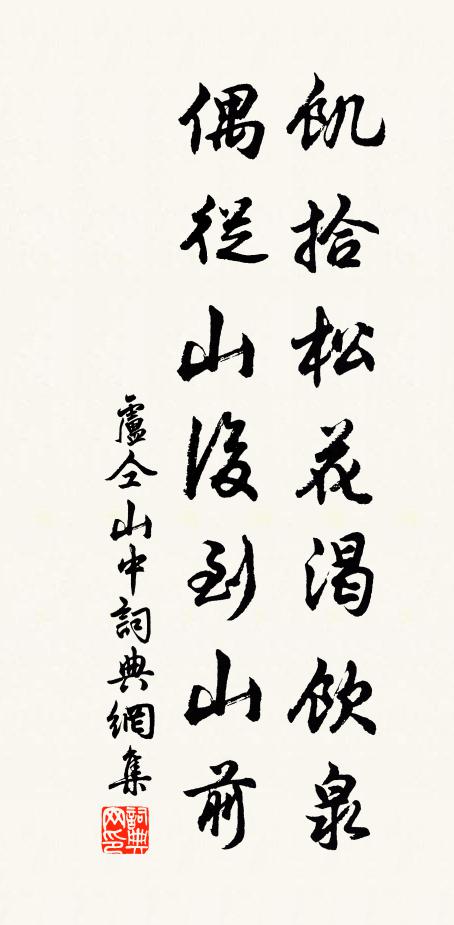 飢拾松花渴飲泉
偶從山後到山前
盧仝山中詞典網集
詞典
网印